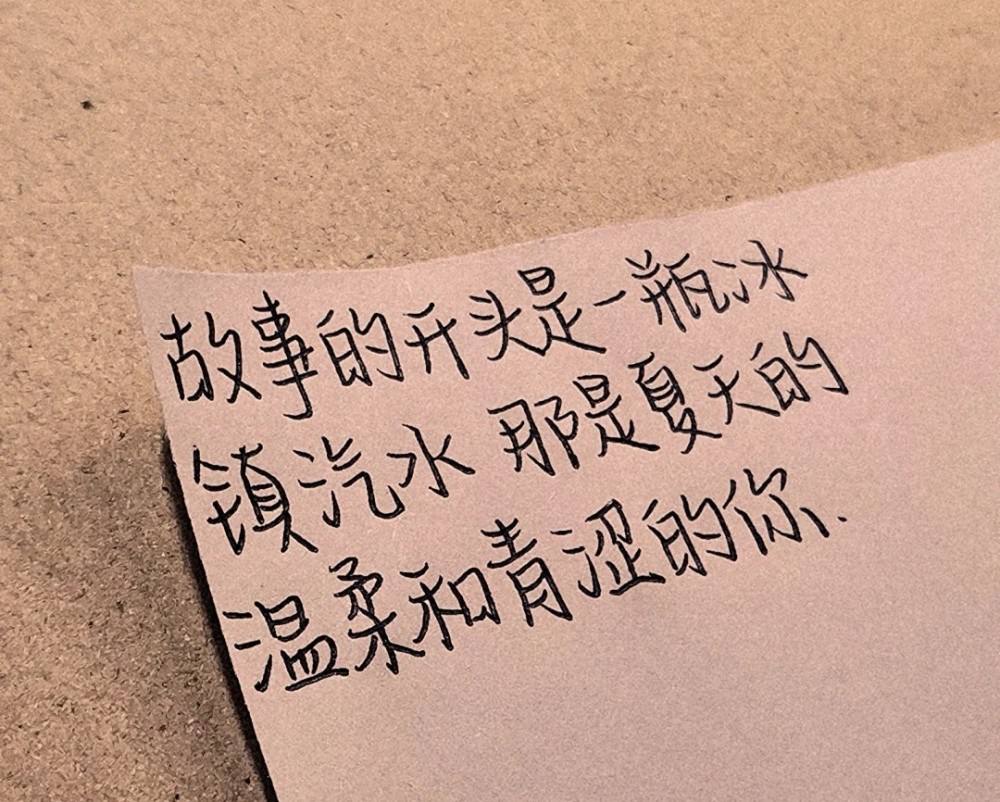 故事的开头是一瓶冰
镇汽水 那是夏天的
温柔和青涩的你.